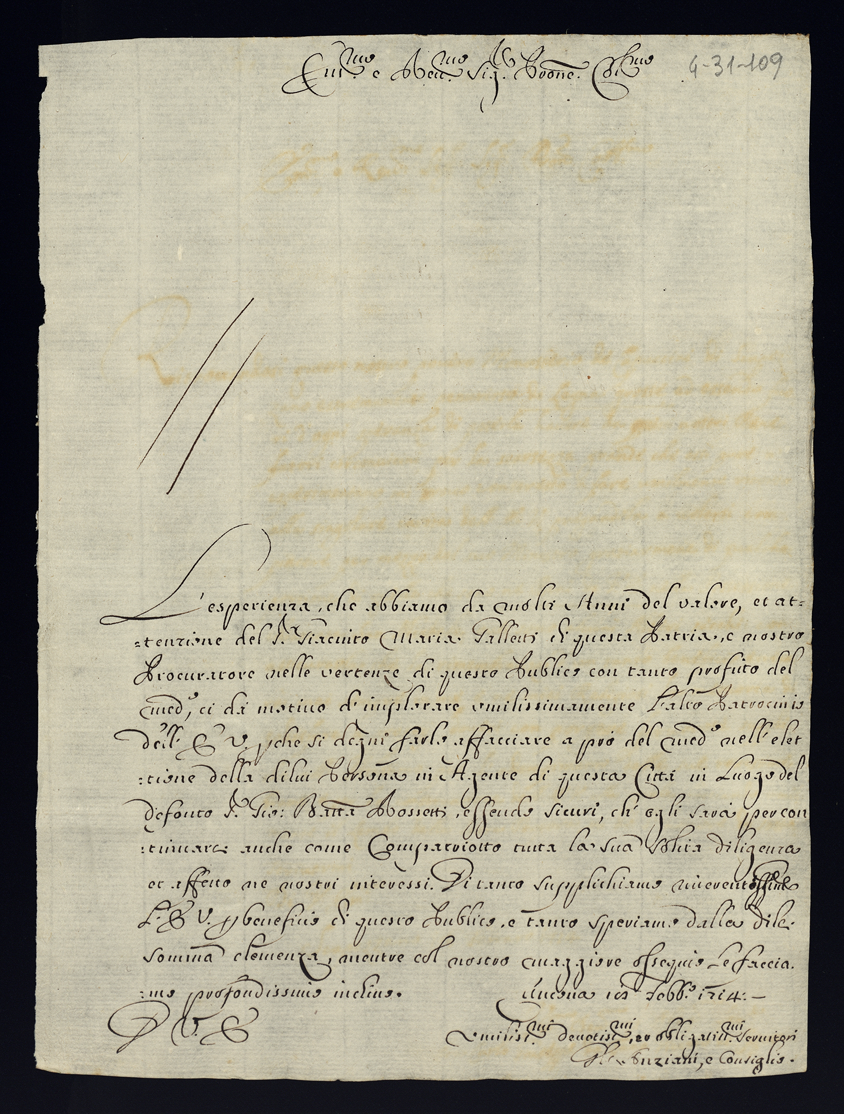 Em.mo e Rev.mo Sig.r Prone. Col.mo
4-31-109
L'esperienza, che abbiamo da molti Anni del valore, et at=
=tenzione del S.r Giacinto Maria Galletti di questa Patria, e nostro
Procuratore nelle vertenze di questo Publico con tanto profitto del
med.o, ci dà motivo d'implorare umilissimamente l'alto Patrocinio
dell' E. V., che si degni farlo affacciare a prò del med.o nell'elet
=tione della dilui Persona in Agente di questa Città in Luogo del
defonto S.r Gio: Batta Rossetti, essendo sicuri, ch'egli sarà per con
:tinuare anche come Compatriotto tutta la sua solita diligenza
et affetto ne nostri interessi. Di tanto supplichiamo
L' E. V. p beneficio di questo Publico, e tanto speriamo dalla di lei
somma clemenza, mentre col nostro maggiore ossequio Le faccia:
:mo profondissimo inchino. Ancona Febb.o 1714. –
D V. E.
Umiliss.mi Devotiss.mi, et obligatiss.mi Servitori
Gl'Anziani, e Consiglio.